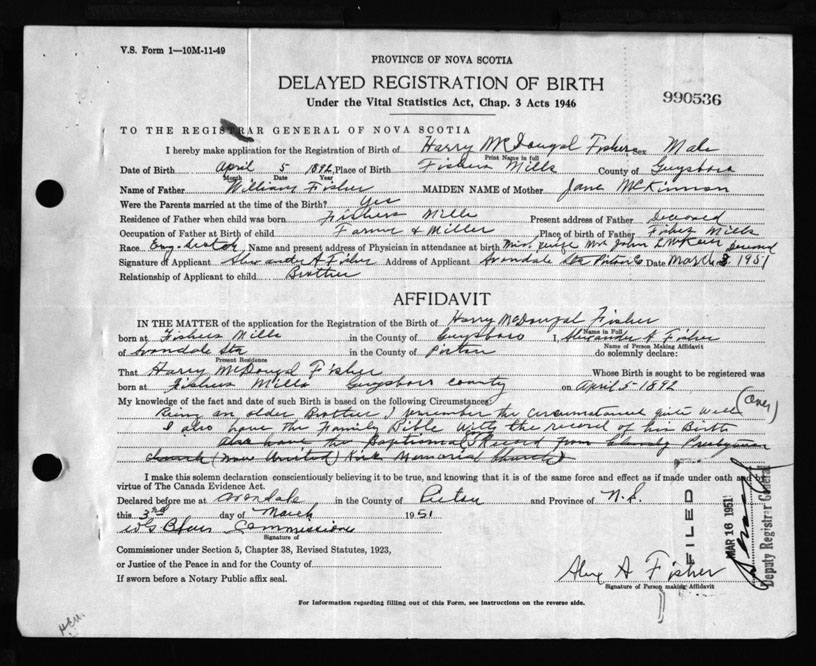 V.S. Form 1—10M-11-49
PROVINCE OF NOVA SCOTIA
DELAYED REGISTRATION OF BIRTH
Under the Vital Statistics Act, Chap. 3 Acts 1946
990536
TO THE REGISTRAR GENERAL OF NOVA SCOTIA
I hereby make application for the Registration of Birth of Harry McDougal Fisher Sex Male
Print Name in full
Date of Birth April 5 1892, Place of Birth Fishers Mills County of Guysboro
Month Date Year
Name of Father William Fisher MAIDEN NAME of Mother Jane McKinnon
Were the Parents married at the time of the Birth? Yes
Residence of Father when child was born Fishers Mills Present address of Father Deceased
Occupation of Father at Birth of child Farmer & Miller Place of birth of Father Fisher Mills
Race Eng. Scotch, Name and present address of Physician in attendance at birth John
Signature of Applicant Alexander A Fisher Address of Applicant Avondale Sta Pictou Co Date March 3, 1951
Relationship of Applicant to child Brother
AFFIDAVIT
IN THE MATTER of the application for the Registration of Birth of Harry McDougal Fisher
Name in Full
born at Fishers Mills in the County of Guysboro I, Alexander A Fisher
Name of Person Making Affidavit
of Avondale Sta in the County of Pictou do solemnly declare:
Present Residence
That Harry McDougal Fisher Whose Birth is sought to be registered was
born at Fishers Mills Guysboro County on April 5-1892
My knowledge of the fact and date of such Birth is based on the following Circumstances: (Over)
Being an older Brother I remember the circumstances quite well
I also have the Family Bible with the record of his Birth
also have the Baptismal Record from Presbyterian
church (now United) Kirk Memorial Church)
I make this solemn declaration conscientiously believing it to be true, and knowing that it is of the same force and effect as if made under oath and by
virtue of The Canada Evidence Act.
Declared before me at Avondale in the County of Pictou and Province of N.S.
this 3rd day of March 1951
Commissioner
Signature of
Commissioner under Section 5, Chapter 38, Revised Statutes, 1923,
or Justice of the Peace in and for the County of
If sworn before a Notary Public affix seal.
Alex A Fisher
Signature of Person making Affidavit
FILED
MAR 16 1951
Deputy Registrar General
For Information regarding filling out of this Form, see instructions on the reverse side.